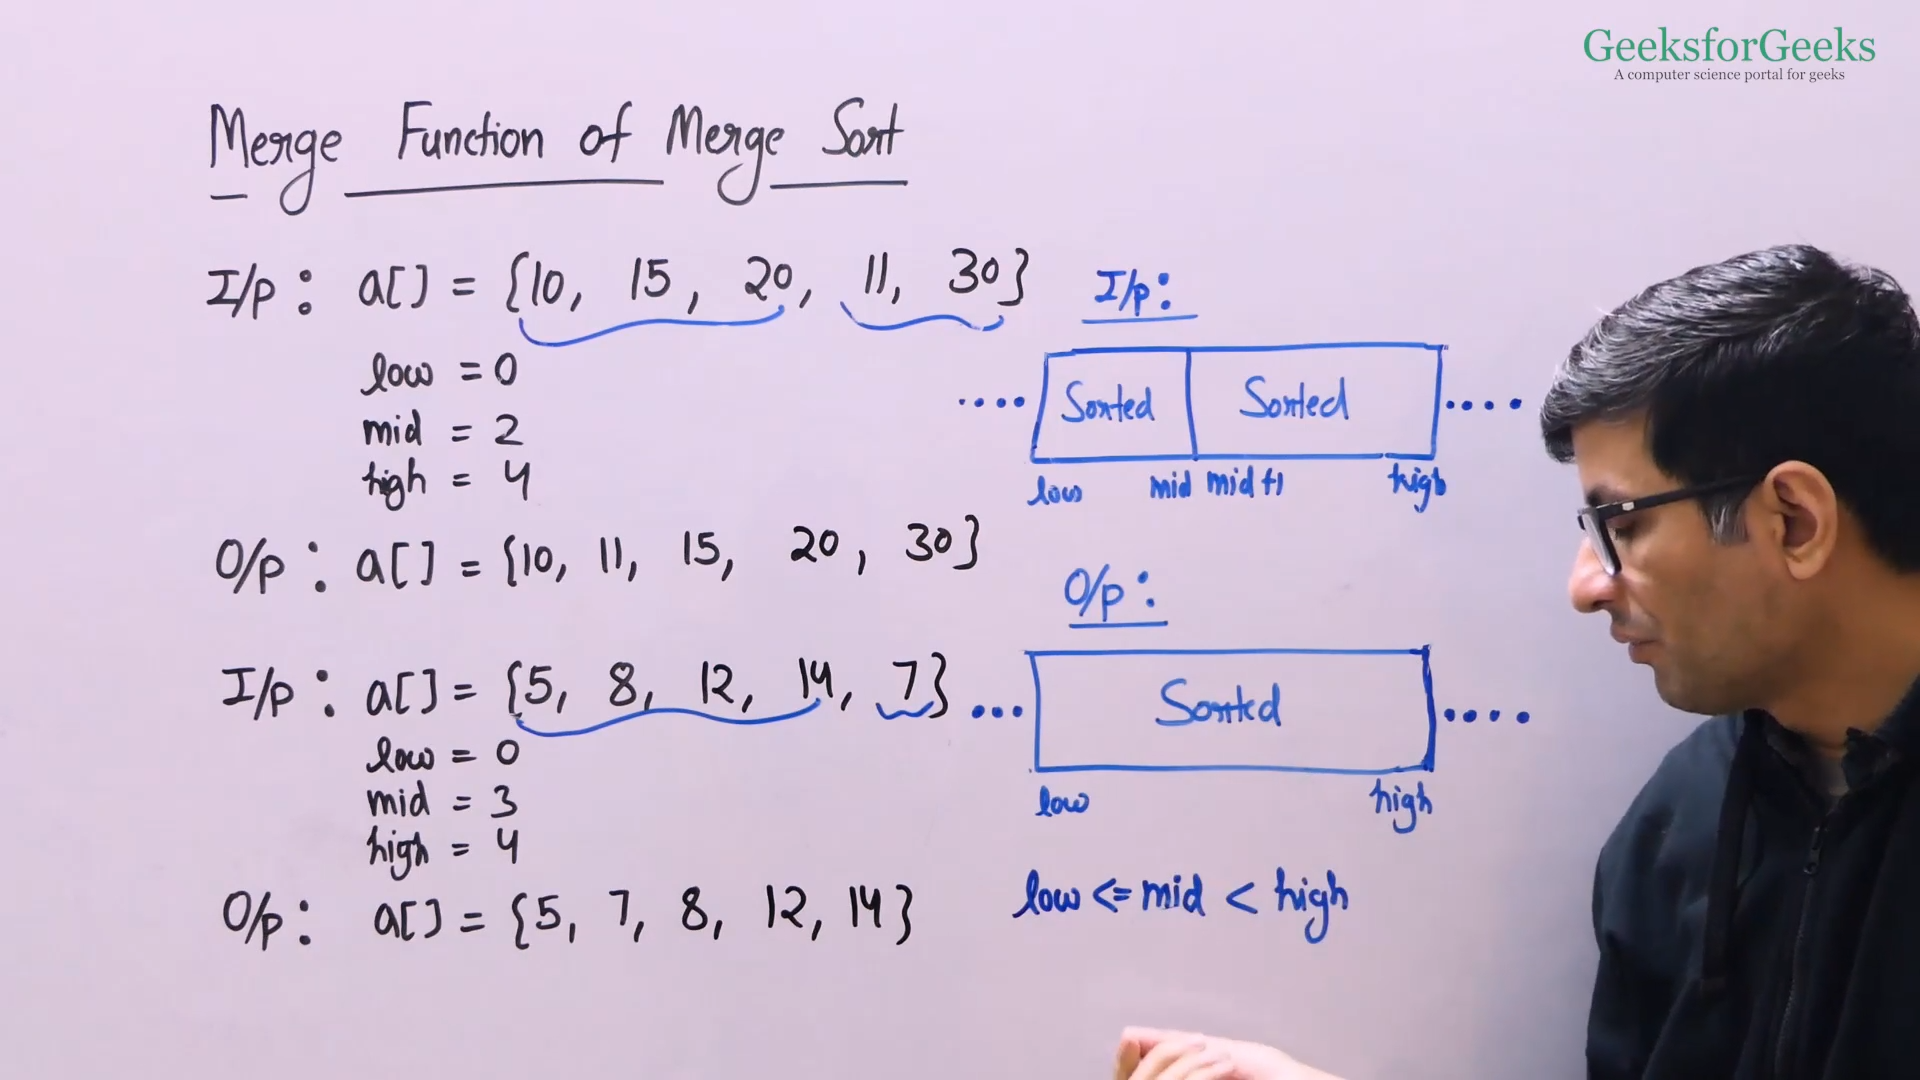 GeeksforGeeks
A computer science portal for geeks
Merge Function of Merge Sort
I/p : a[] = {10, 15, 20, 11, 30}
low = 0
mid = 2
high = 4
O/p : a[] = {10, 11, 15, 20, 30}
I/p : a[] = {5, 8, 12, 14, 7}
low = 0
mid = 3
high = 4
O/p : a[] = {5, 7, 8, 12, 14}
I/p :
.... Sorted Sorted ....
low mid mid+1 high
O/p :
... Sorted ....
low high
low <= mid < high